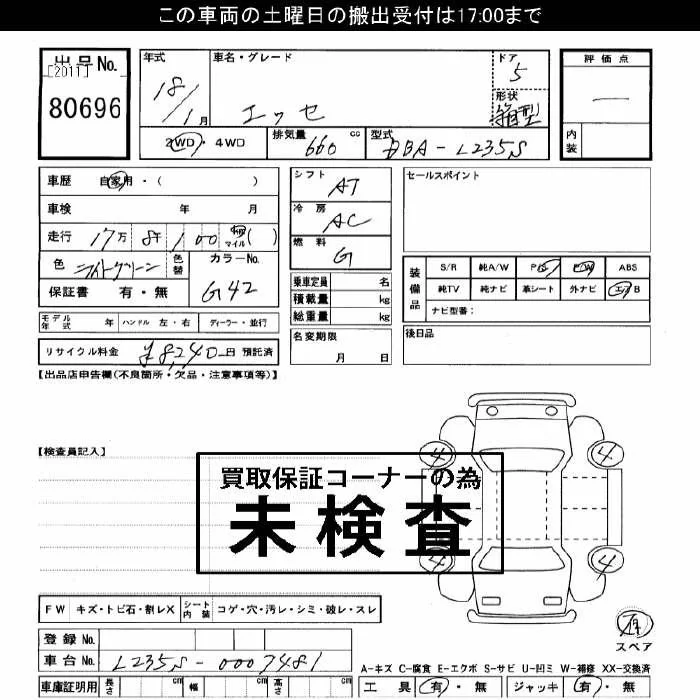 この車両の土曜日の搬出受付は17:00まで
出品No.
[2011]
80696
年式
18/1月
車名・グレード
エッセ
ドア
5
形状
箱型
評価点
—
内装
2WD・4WD
排気量 660 cc
型式 DBA-L235S
車歴 自家用・( )
車検 年 月
走行 17万8千100 マイル( )
色 ライトグリーン
色替
カラーNo.
G42
保証書 有・無
モデル年式 年 ハンドル 左・右 ディーラー・並行
リサイクル料金 ¥8,240-円 預託済
シフト AT
冷房 AC
燃料 G
乗車定員 名
積載量 kg
総重量 kg
名変期限
月 日
セールスポイント
装備品
S/R 純A/W P/S P/W ABS
純TV 純ナビ 革シート 外ナビ エアB
ナビ型番:
後日品
【出品店申告欄(不良箇所・欠品・注意事項等)】
【検査員記入】
買取保証コーナーの為
未検査
4
4
4
4
有
スペア
FW キズ・トビ石・割レX
シート内装 コゲ・穴・汚レ・シミ・破レ・スレ
登録No.
車台No. L235S-0007481
A-キズ C-腐食 E-エクボ S-サビ U-凹ミ W-補修 XX-交換済
車庫証明用 長さ cm 幅 cm 高さ cm
工具 有・無 ジャッキ 有・無